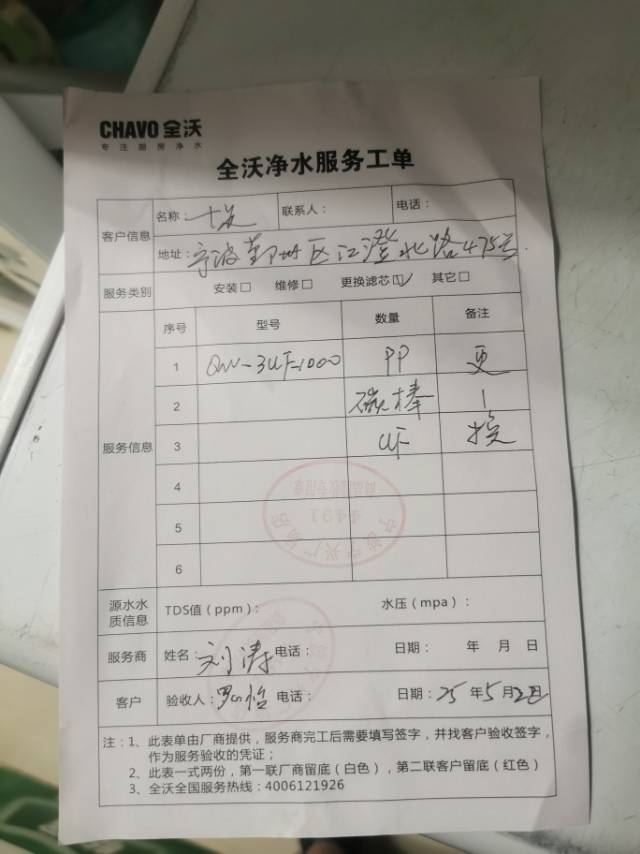 CHAVO 全沃
专注厨房净水
全沃净水服务工单
客户信息
名称： 联系人： 电话：
地址：宁波鄞州区江澄北路475号
服务类别 安装□ 维修□ 更换滤芯☑ 其它□
服务信息
序号 型号 数量 备注
1 QW-3UF-1000 PP 更
2 碳棒 |
3 UF 换
4
5
6
源水水质信息 TDS值（ppm）： 水压（mpa）：
服务商 姓名：刘涛 电话： 日期： 年 月 日
客户 验收人： 电话： 日期：25年5月2日
注：1、此表单由厂商提供，服务商完工后需要填写签字，并找客户验收签字，
作为服务验收的凭证；
2、此表一式两份，第一联厂商留底（白色），第二联客户留底（红色）
3、全沃全国服务热线：4006121926